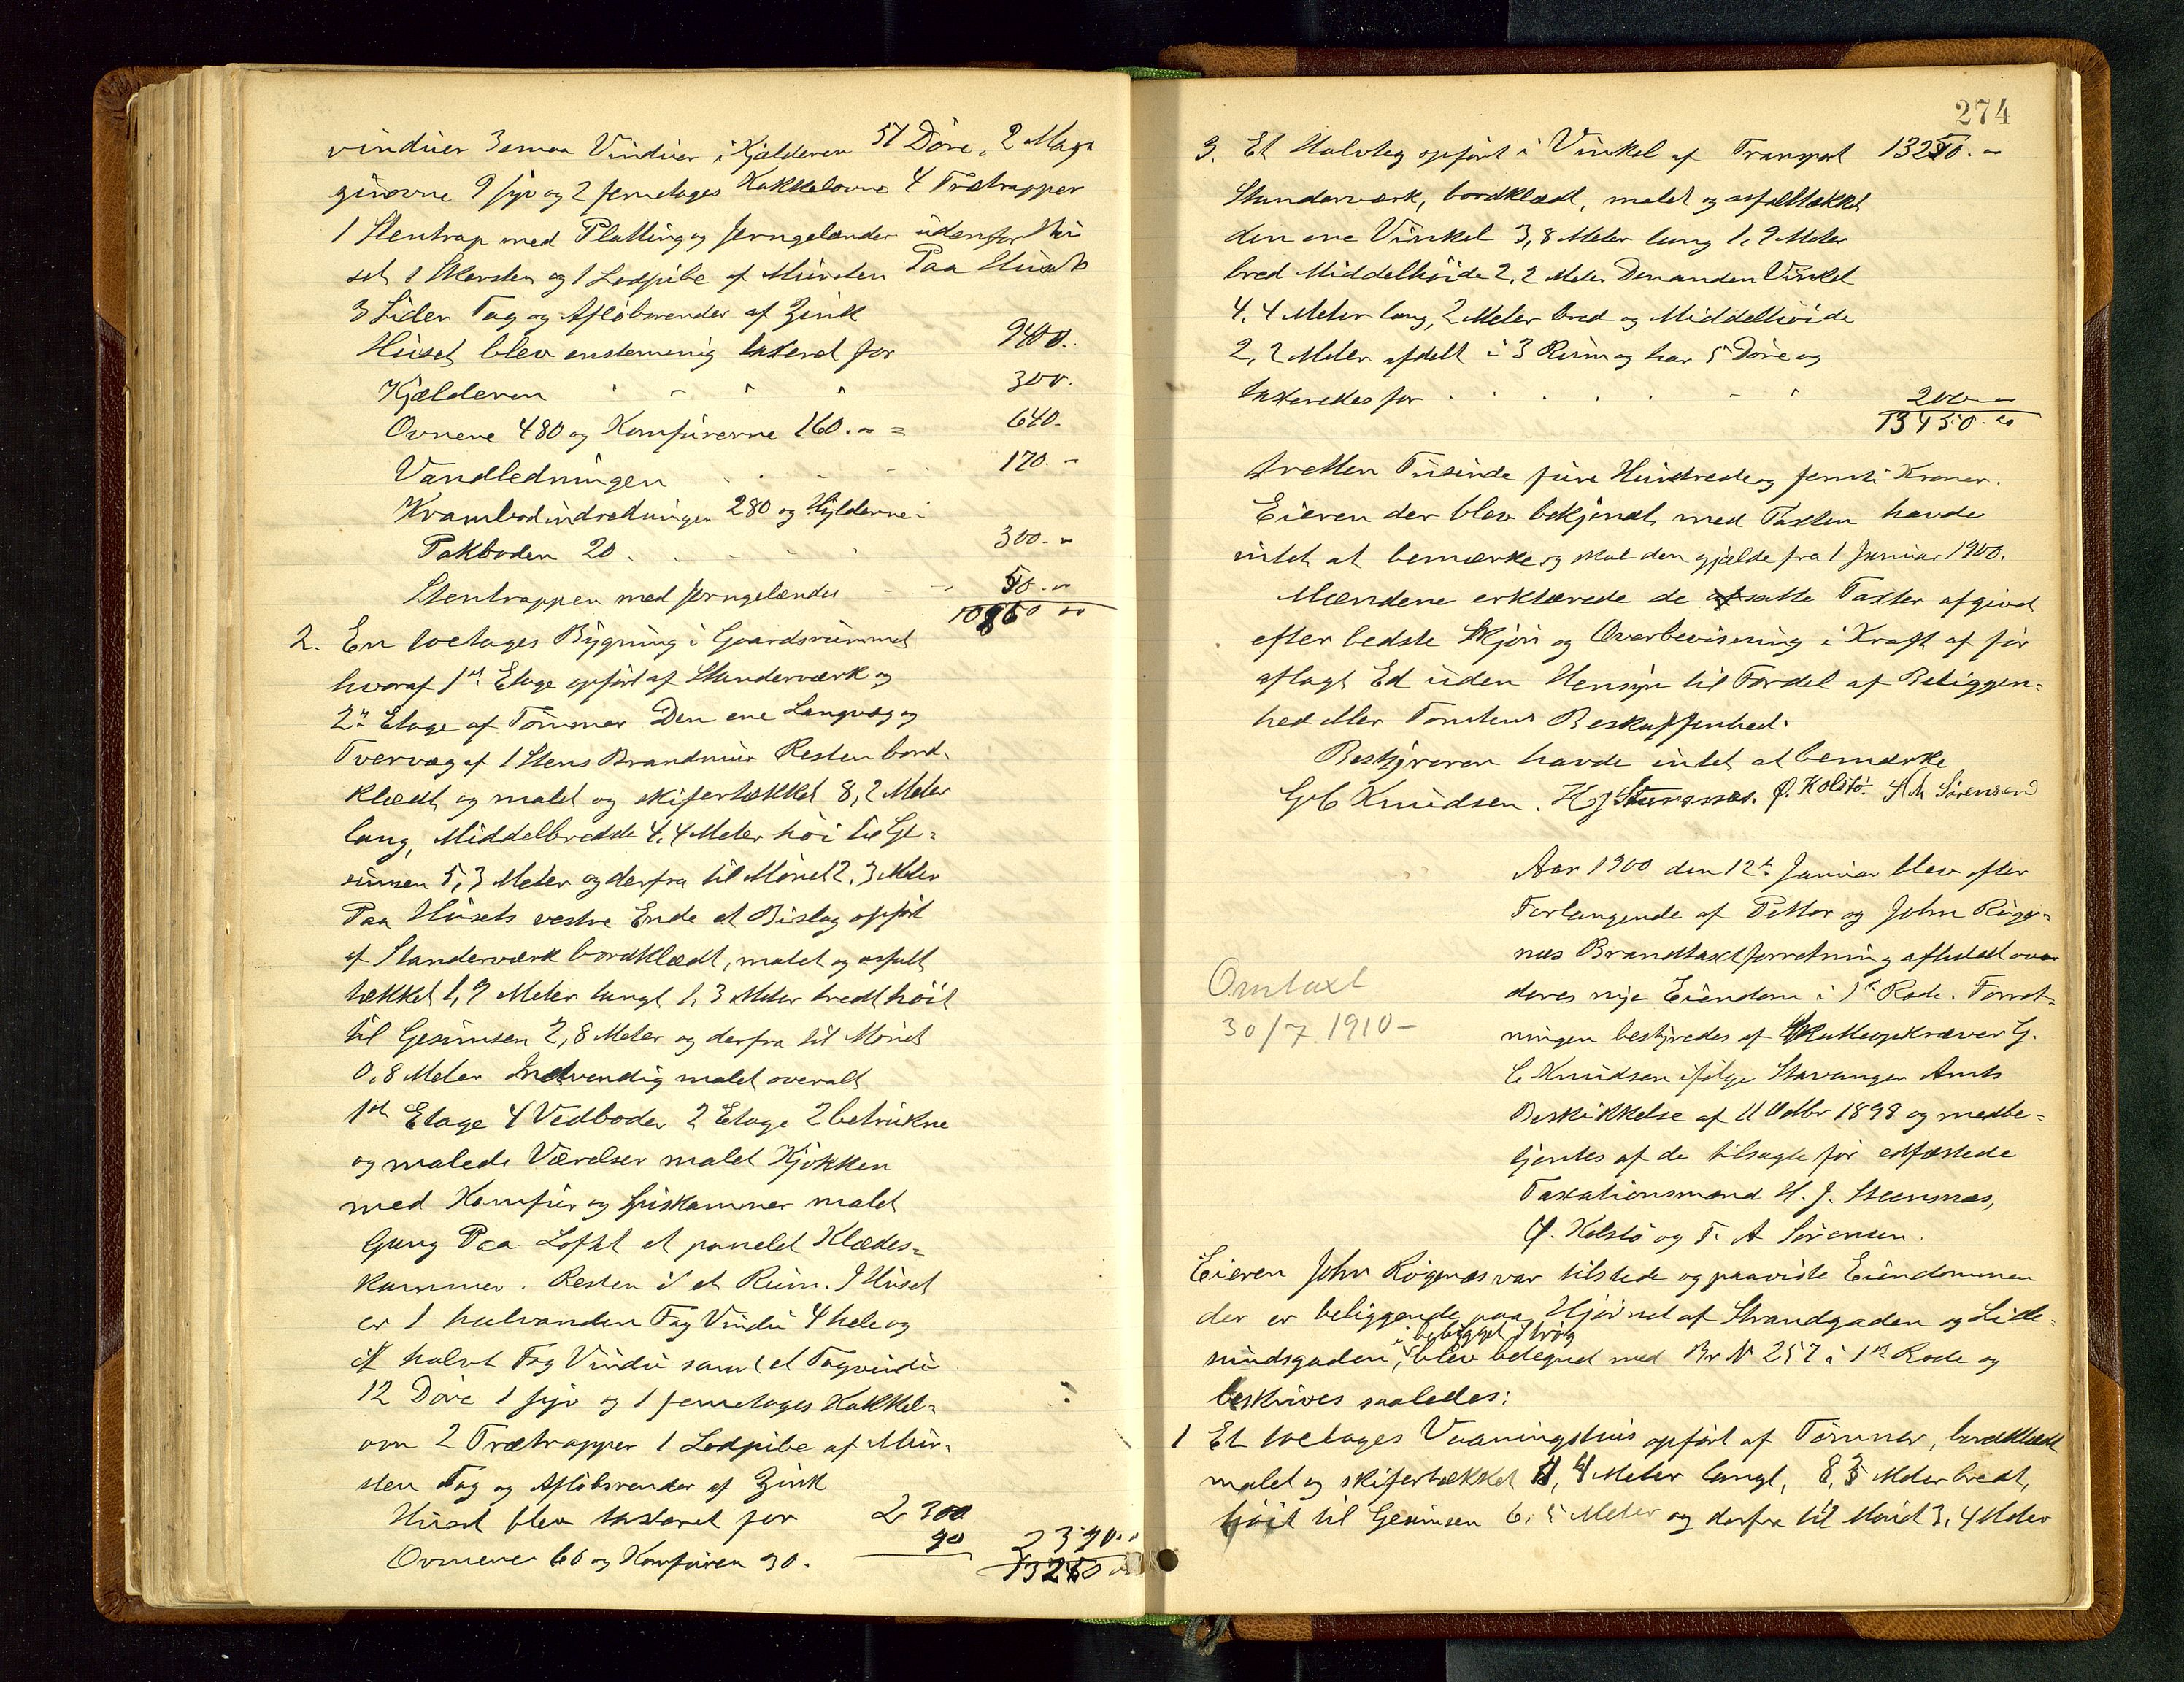 vinduer 3 smaa Vinduer i Kjælderen 51 Döre, 2 Maga
zinovne 9 syv og 2 femetages Kakkelovne 4 Trætrapper
1 Stentrap med Platting og Jerngelænder udenfor Hu
set 1 Skorsten og 1 Lodpibe af Mursten Paa Husets
3 Sider Tag og Aflöbsrender af Zink
Huset blev enstemmig taxeret for 9400.
Kjælderen 300.
Ovnene 480 og Komfurerne 160.- = 640.
Vandledningen 170.-
Krambodindretningen 280 og Hylderne i
Pakboden 20 300.-
Stentrappen med Jerngelænder 50.-
10860
2. En toetages Bygning i Gaardsrummet
hvoraf 1st Etage opfört af Standerværk og
2n Etage af Tömmer Den ene Langvæg og
Tvervæg af 1 Stens Brandmur Resten bord
klædt og malet og skifertækket 8,2 Meter
lang, Middelbredde 4,4 Meter höi til Ge=
simsen 5,3 Meter og derfra til Mönet 2,3 Meter
Paa Husets vestre Ende et Bislag opfört
af Standerværk bordklædt, malet og asfalt
tækket 1,9 Meter langt 1,3 Meter bredt höit
til Gesimsen 2,8 Meter og derfra til Mönet
0,8 Meter Indvendig malet overalt
1st Etage 4 Vedboder 2 Etage 2 betrukne
og malede Værelser malet Kjökken
med Komfur og Spiskammer malet
Gang Paa Loftet et panelet Klædes=
kammer. Resten i et Rum. I Huset
er 1 halvanden Fag Vindu 4 hele og
et halvt Fag Vindu samt et Tagvindu
12 Döre 1 syv og 1 femetages Kakkel=
ovn 2 Trætrapper 1 Lodpibe af Mur=
sten Tag og Aflöbsrender af Zink
Huset blev taxeret for 2 300
Ovnene 60 og Komfuren 30. 90 2390.-
13250
274
3. Et Halvtag opfört i Vinkel af Transport 13250.-
Standerværk, bordklædt, malet og asfalttækket
den ene Vinkel 3,8 Meter lang 1,9 Meter
bred Middelhöide 2,2 Meter Den anden Vinkel
4,4 Meter lang, 2 Meter bred og Middelhöide
2,2 Meter afdelt i 3 Rum og har 5 Döre og
taxeredes for 200
13450.-
tretten Tusinde fire Hundrede og femti Kroner.
Eieren der blev bekjendt med Taxten havde
intet at bemærke og skal den gjælde fra 1 Januar 1900.
Mændene erklærede de afsatte Taxter afgivet
efter bedste Skjön og Overbevisning i Kraft af för
aflagt Ed uden Hensyn til Fordel af Beliggen=
hed eller Tomtens Beskaffenhed.
Bestyreren havde intet at bemærke
G C Knudsen. H J Steensnæs. Ø. Kolstö. T A Sörensen
Aar 1900 den 12te Januar blev efter
Forlangende af Petter og John Rögg=
næs Brandtaxtforretning afholdt over
deres nye Eiendom i 1st Rode. Forret=
ningen bestyredes af Skatteopkræver G.
C Knudsen ifölge Stavanger Amts
Beskikkelse af 11 Oktbr 1898 og medbe=
tjentes af de tilsagte för edfæstede
Taxationsmænd H. J. Steensnæs,
Ø. Kolstö og T. A Sörensen.
Omtaxt
30/7 1910 -
Eieren John Rögenæs var tilstede og paaviste Eiendommen
der er beliggende paa Hjörnet af Strandgaden og Lille=
i bebygget Strög
sundsgaden, blev betegnet med Br N 257 i 1st Rode og
beskrives saaledes:
1 Et toetages Vaaningshus opfört af Tömmer, bordklædt
malet og skifertækket 11,4 Meter langt, 8,5 Meter bredt,
höit til Gesimsen 6,5 Meter og derfra til Mönet 3,4 Meter